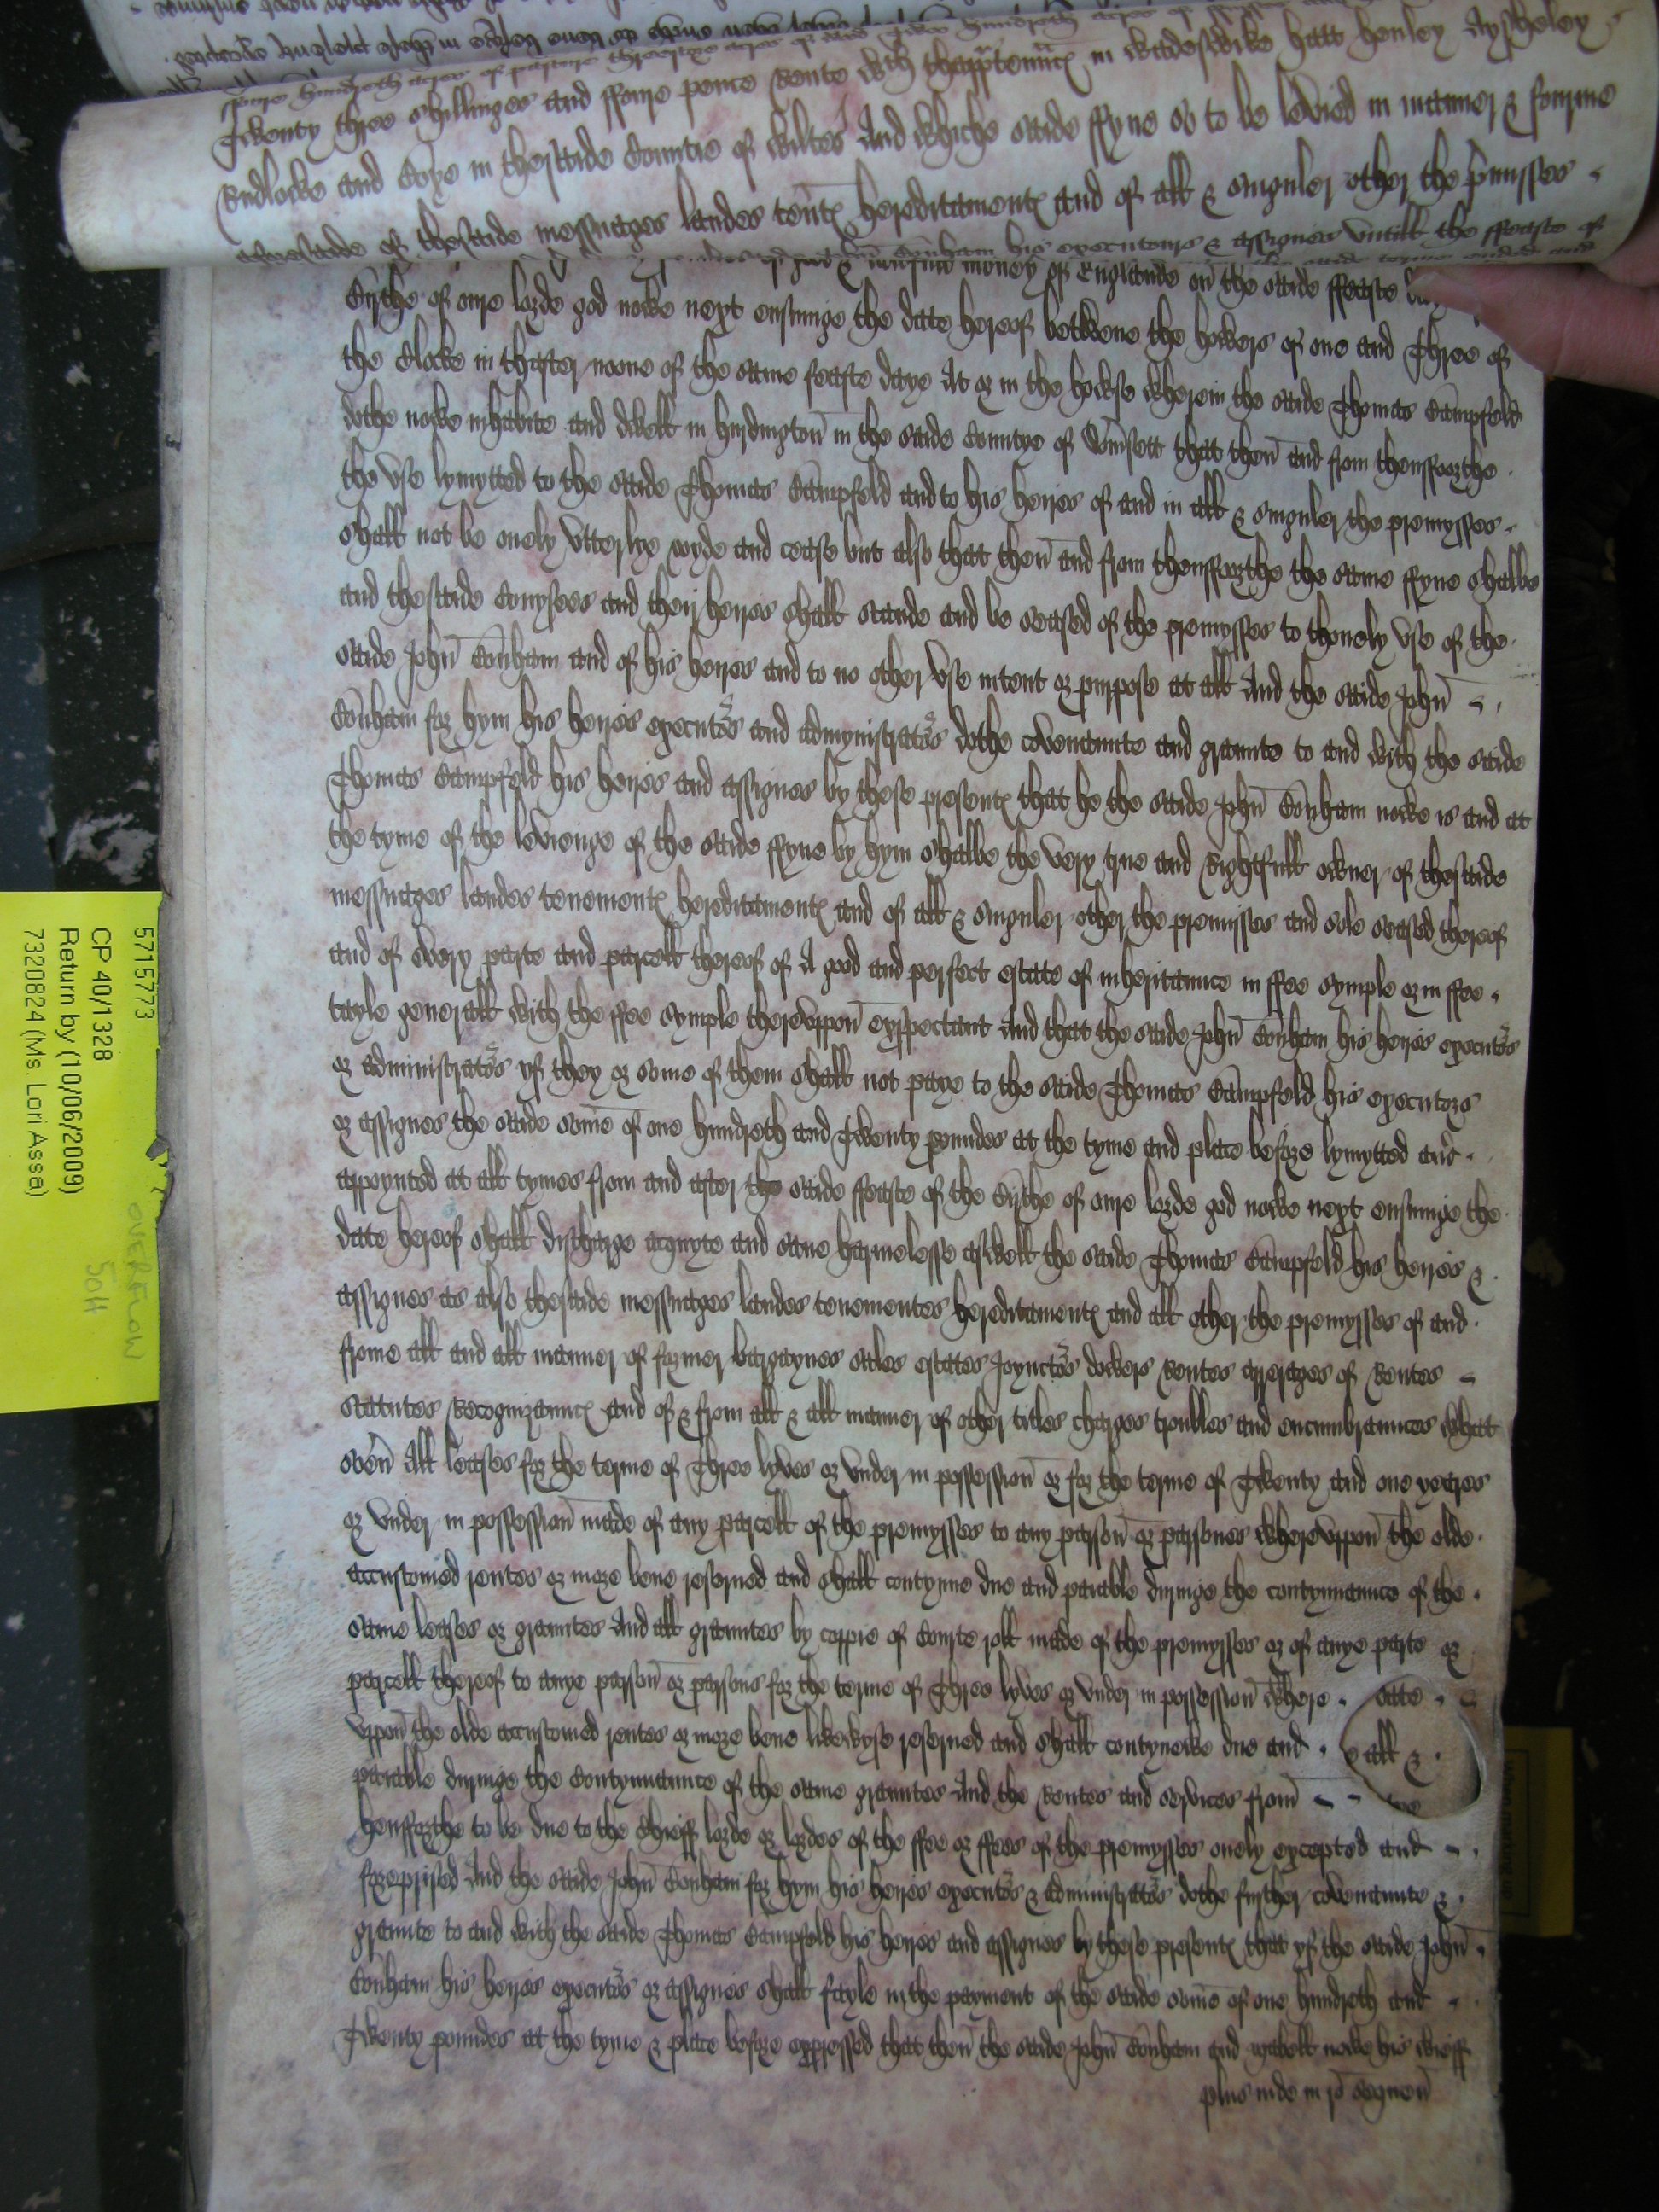 Twenty three shillinges and ffoure pence Rente wth thapp'tennc̃ in Wadeswike hatt henley Aysheley
Rudlocke and Boxe in thesaide Countie of Wiltes And whiche saide ffyne so to be levied in manner & fourme
aforesaide of thesaide messuages landes tent̃ hereditament̃ and of all & singuler other the p'misses
Conham his executours & assignes untill the ffeaste of
money of Englande on the saide ffeaste
Birthe of oure lorde god nowe next ensuinge the date hereof betwene the howers of one and Three of
the Clocke in thafter noone of the same feaste daye At or in the howse wherein the saide Thomas Campfeld
dothe nowe inhabite and dwell in in the saide Countye of Som̃sett that then and from thensfoorthe
the use lymytted to the saide Thomas Campfeld and to his heires of and in all & singuler the premysses
shall not be onely utterlye voyde and cease but also that then and from thensfoorthe the same ffyne shalbe
and thesaide Conysees and their heires shall stande and be seased of the premysses to thonely use of the
saide John Conham and of his heires and to no other use intent or purpose at all And the saide John
Conham for hym his heires executo's and admynistrato's dothe covenaunte and graunte to and with the saide
Thomas Campfeld his heires and assignes by these present̃ that he the saide John Conham nowe is and at
the tyme of the levienge of the saide ffyne by hym shalbe the very true and Rightfull owner of thesaide
messuages landes tenement̃ hereditament̃ and of all & singuler other the premisses and sole seased thereof
and of every parte and parcell thereof of A good and perfect estate of inheritaunce in ffee symple or in ffee
tayle generall with the ffee symple thereuppon exspectant And that the saide John Conham his heires executo's
or administrato's yf they or some of them shall not paye to the saide Thomas Campfeld his executors
or assignes the saide some of one hundreth and Twenty poundes at the tyme and place before lymytted and
appoynted at all tymes from and after the saide ffeaste of the Birthe of oure lorde god nowe next ensuinge the
date hereof shall discharge acquyte and save harmelesse aswell the saide Thomas Campfeld his heires &
assignes as also thesaide messuages landes tenementes hereditament̃ and all other the premysses of and
frome all and all manner of former bargaynes sales estates Joyncto's dowers Rentes arrerages of Rentes
statutes Recognizaunc̃ and of & from all & all manner of other titles charges troubles and encumbraunces what
soev' All leases for the terme of Three lyves or under in possession or for the terme of Twenty and one yeares
or under in possession made of any parcell of the premysses to any parson or parsones whereuppon the olde
accustomed rentes or more bene reserved and shall contynue due and paiable duringe the contynuaunce of the
same leases or grauntes And all grauntes by coppie of Courte roll made of the premysses or of anye parte or
parcell thereof to anye parson or parsons for the terme of Three lyves or under in possession where
uppon the olde accustomed rentes or more bene likewyse reserved and shall contynewe due and
paiable duringe the Contynuaunce of the same grauntes And the Rentes and services from
hensfforthe to be due to the Chieff lorde or lordes of the ffee or ffees of the premysses onely excepted and
foreprised And the saide John Conham for hym his heires executo's & administrato's dothe further covenaunte &
graunte to and with the saide Thomas Campfeld his heires and assignes by these present̃ that yf the saide John
Conham his heires executo's or assignes shall fayle in the payment of the saide some of one hundreth and
Twenty poundes at the tyme & place before expressed that then the saide John Conham and nowe his wieff
plus inde in ro sequen
5715773
CP 40/1328
Return by (10/06/2009)
7320824 (Ms. Lori Assa)
OVERFLOW
50H